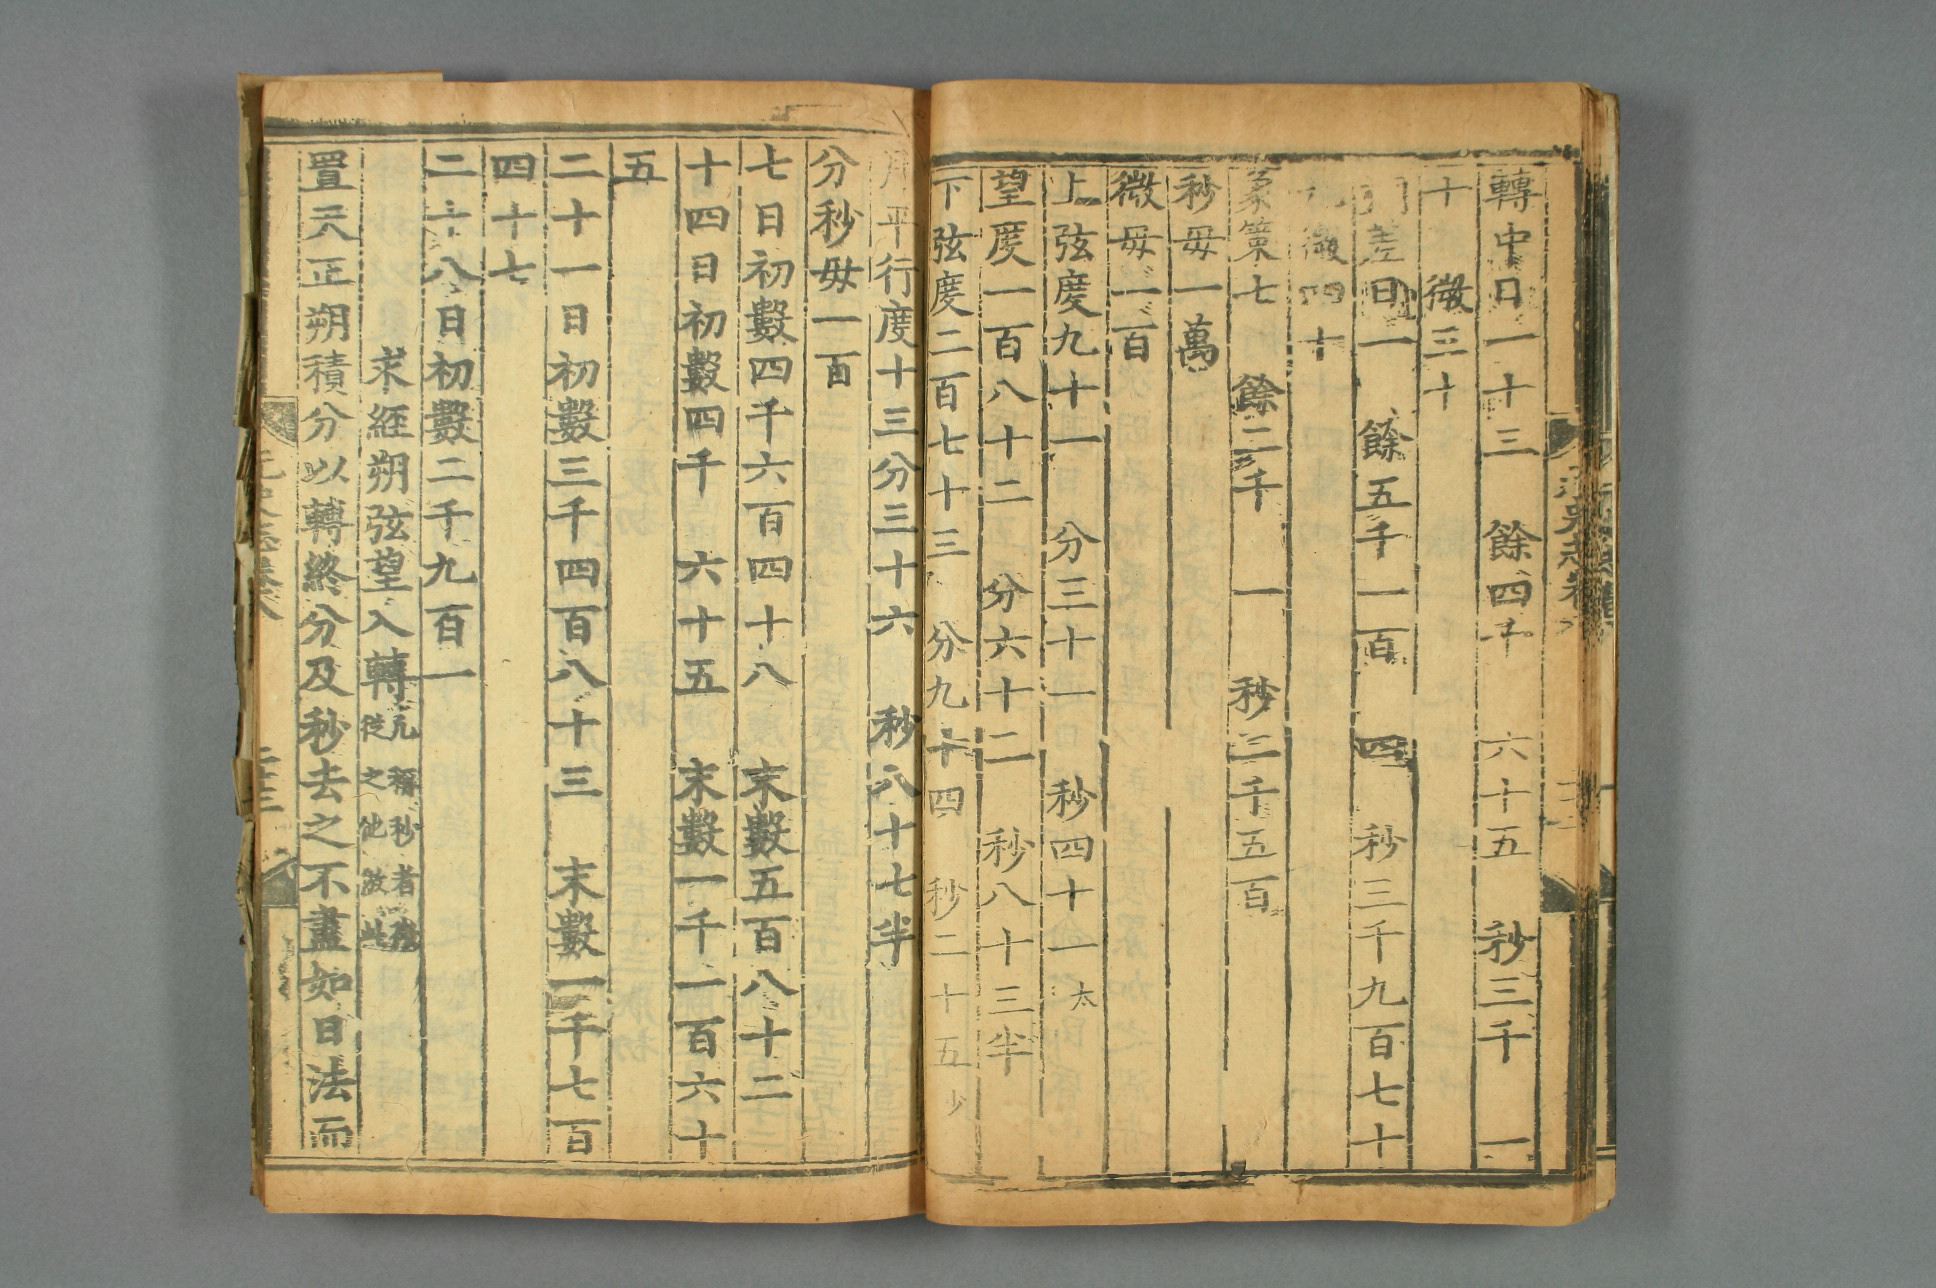 轉中日一十三　餘四千　六十五　秒三千　一
十　微三十
差日一　餘五千一百　四　秒三千九百七十
微四十
象策七　餘二千　一　秒二千五百
秒母一萬
微母一百
上弦度九十一　分三十一　秒四十一太
望度一百八十二　分六十二　秒八十三半
下弦度二百七十三　分九十四　秒二十五少
月平行度十三分三十六　秒八十七半
分秒母一百
七日初數四千六百四十八　末數五百八十二
十四日初數四千　六十五　末數一千一百六十
五
二十一日初數三千四百八十三　末數一千七百
四十七
二十八日初數二千九百一
求經朔弦望入轉凡稱秒者微從之他放此
置天正朔積分以轉終分及秒去之不盡如日法而
元史志卷八